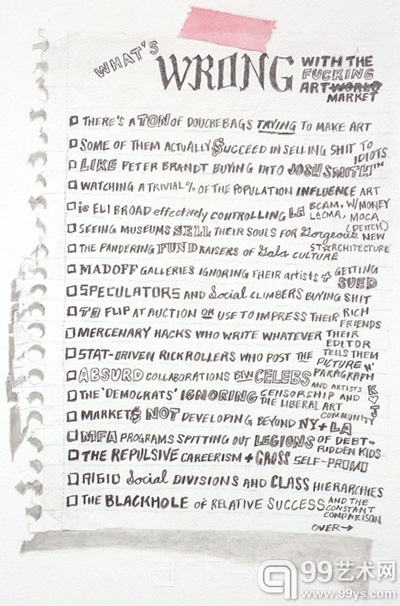 WHAT'S
WRONG WITH THE
FUCKING
ART WORLD
MARKET
THERE'S A TON OF DOUCHEBAGS TRYING TO MAKE ART
SOME OF THEM ACTUALLY $UCCEED IN SELLING SHIT TO IDIOTS
LIKE PETER BRANDT BUYING INTO JOSH SMITH™
WATCHING A TRIVIAL % OF THE POPULATION INFLUENCE ART
ie ELI BROAD effectively CONTROLLING LA BCAM, W/MONEY LACMA, MOCA (DEITCH)
SEEING MUSEUMS SELL THEIR SOULS FOR Gorgeous NEW ST☆RCHITECTURE
THE PANDERING FUND RAISERS OF Gala CULTURE
MADOFF GALLERIES IGNORING THEIR ARTISTS + GETTING SUED
SPECULATORS AND Social CLIMBERS BUYING SHIT
TO FLIP AT AUCTION OR USE TO IMPRESS THEIR RICH FRIENDS
MERCENARY HACKS WHO WRITE WHATEVER THEIR EDITOR TELLS THEM
STAT-DRIVEN RICKROLLERS WHO POST THE PICTURE N' PARAGRAPH
ABSURD COLLABORATIONS B/W CELEBS AND ARTISTS
THE 'DEMOCRATS' IGNORING CENSORSHIP AND THE LIBERAL ART COMMUNITY
MARKET$ NOT DEVELOPING BEYOND NY + LA
MFA PROGRAMS SPITTING OUT LEGIONS OF DEBT-RIDDEN KIDS
THE REPULSIVE CAREERISM + GROSS SELF-PROMO
RIGID Social DIVISIONS AND CLASS HIERARCHIES
THE BLACKHOLE OF RELATIVE SUCCESS AND THE CONSTANT COMPARISON
OVER→
99艺术网
www.99ys.com